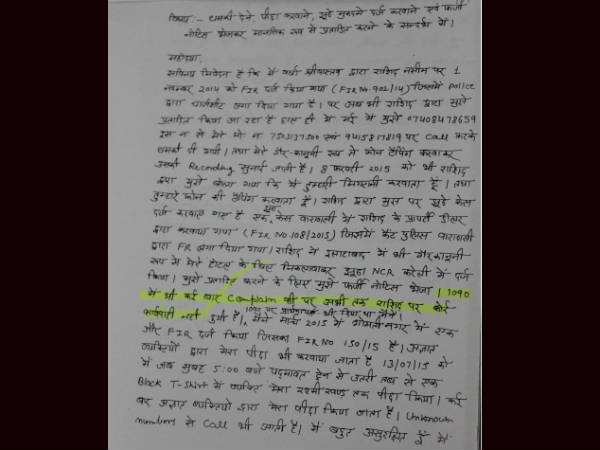 विषय :- धमकी देने, पीछा करवाने, झूठे मुकदमे दर्ज करवाने एवं फर्जी
नोटिस भेजकर मानसिक रूप से प्रताड़ित करने के सन्दर्भ में।
महोदया,
सविनय निवेदन है कि मैं वर्षा श्रीवास्तव द्वारा राशिद नसीम पर 1
नवम्बर 2014 को FIR दर्ज किया गया (FIR No 902/14) जिसमें police
द्वारा चार्जशीट लगा दिया गया है। पर अब भी राशिद द्वारा मुझे
प्रताड़ित किया जा रहा है हाल ही में मई में मुझे 07408478659
इस न० से मेरे मो न० एवं 9415877819 पर call करके
धमकी दी गयी। तथा मेरे गैर-कानूनी रूप से फोन टैपिंग करवाकर
उसकी Recording सुनाई जाती है। 8 फरवरी 2015 को भी राशिद
द्वारा मुझे गया कि मैं तुम्हारी निगरानी करवाता हूँ। तथा
तुम्हारे फोन की टैपिंग करवाता हूँ। राशिद द्वारा मुझ पर झूठे केस
दर्ज करवाए गए हैं एक झूठा केस वाराणसी में राशिद के प्रापर्टी डीलर
द्वारा करवाया गया (FIR No.108/2015) जिसमें कैंट पुलिस वाराणसी
द्वारा FR लगा दिया गया। राशिद ने इलाहाबाद में भी गैरकानूनी
रूप से मेरे डिटेल के लिए निकलवाकर झूठा NCR करेली में दर्ज
किया। मुझे प्रताड़ित करने के लिए मुझे फर्जी नोटिस भेजा। 1090
में भी कई बार Complain की पर अभी तक राशिद पर कोई
कार्यवाही नहीं हुयी है। 1090 पर भी दिया था मैंने।
मैंने मार्च 2015 में गोमती नगर में एक
और FIR दर्ज किया जिसका FIR No 150/15 है। अज्ञात
व्यक्तियों द्वारा मेरा पीछा भी करवाया जाता है 13/07/15 को
मैं जब सुबह 5:00 बजे पद्मावत ट्रेन से उतरी तब से एक
Black T-Shirt में व्यक्ति मेरा रश्मीखण्ड तक पीछा किया। कई
बार अज्ञात व्यक्तियों द्वारा मेरा पीछा किया जाता है। Unknown
numbers से call भी आती है। मैं बहुत असुरक्षित हूँ मैं